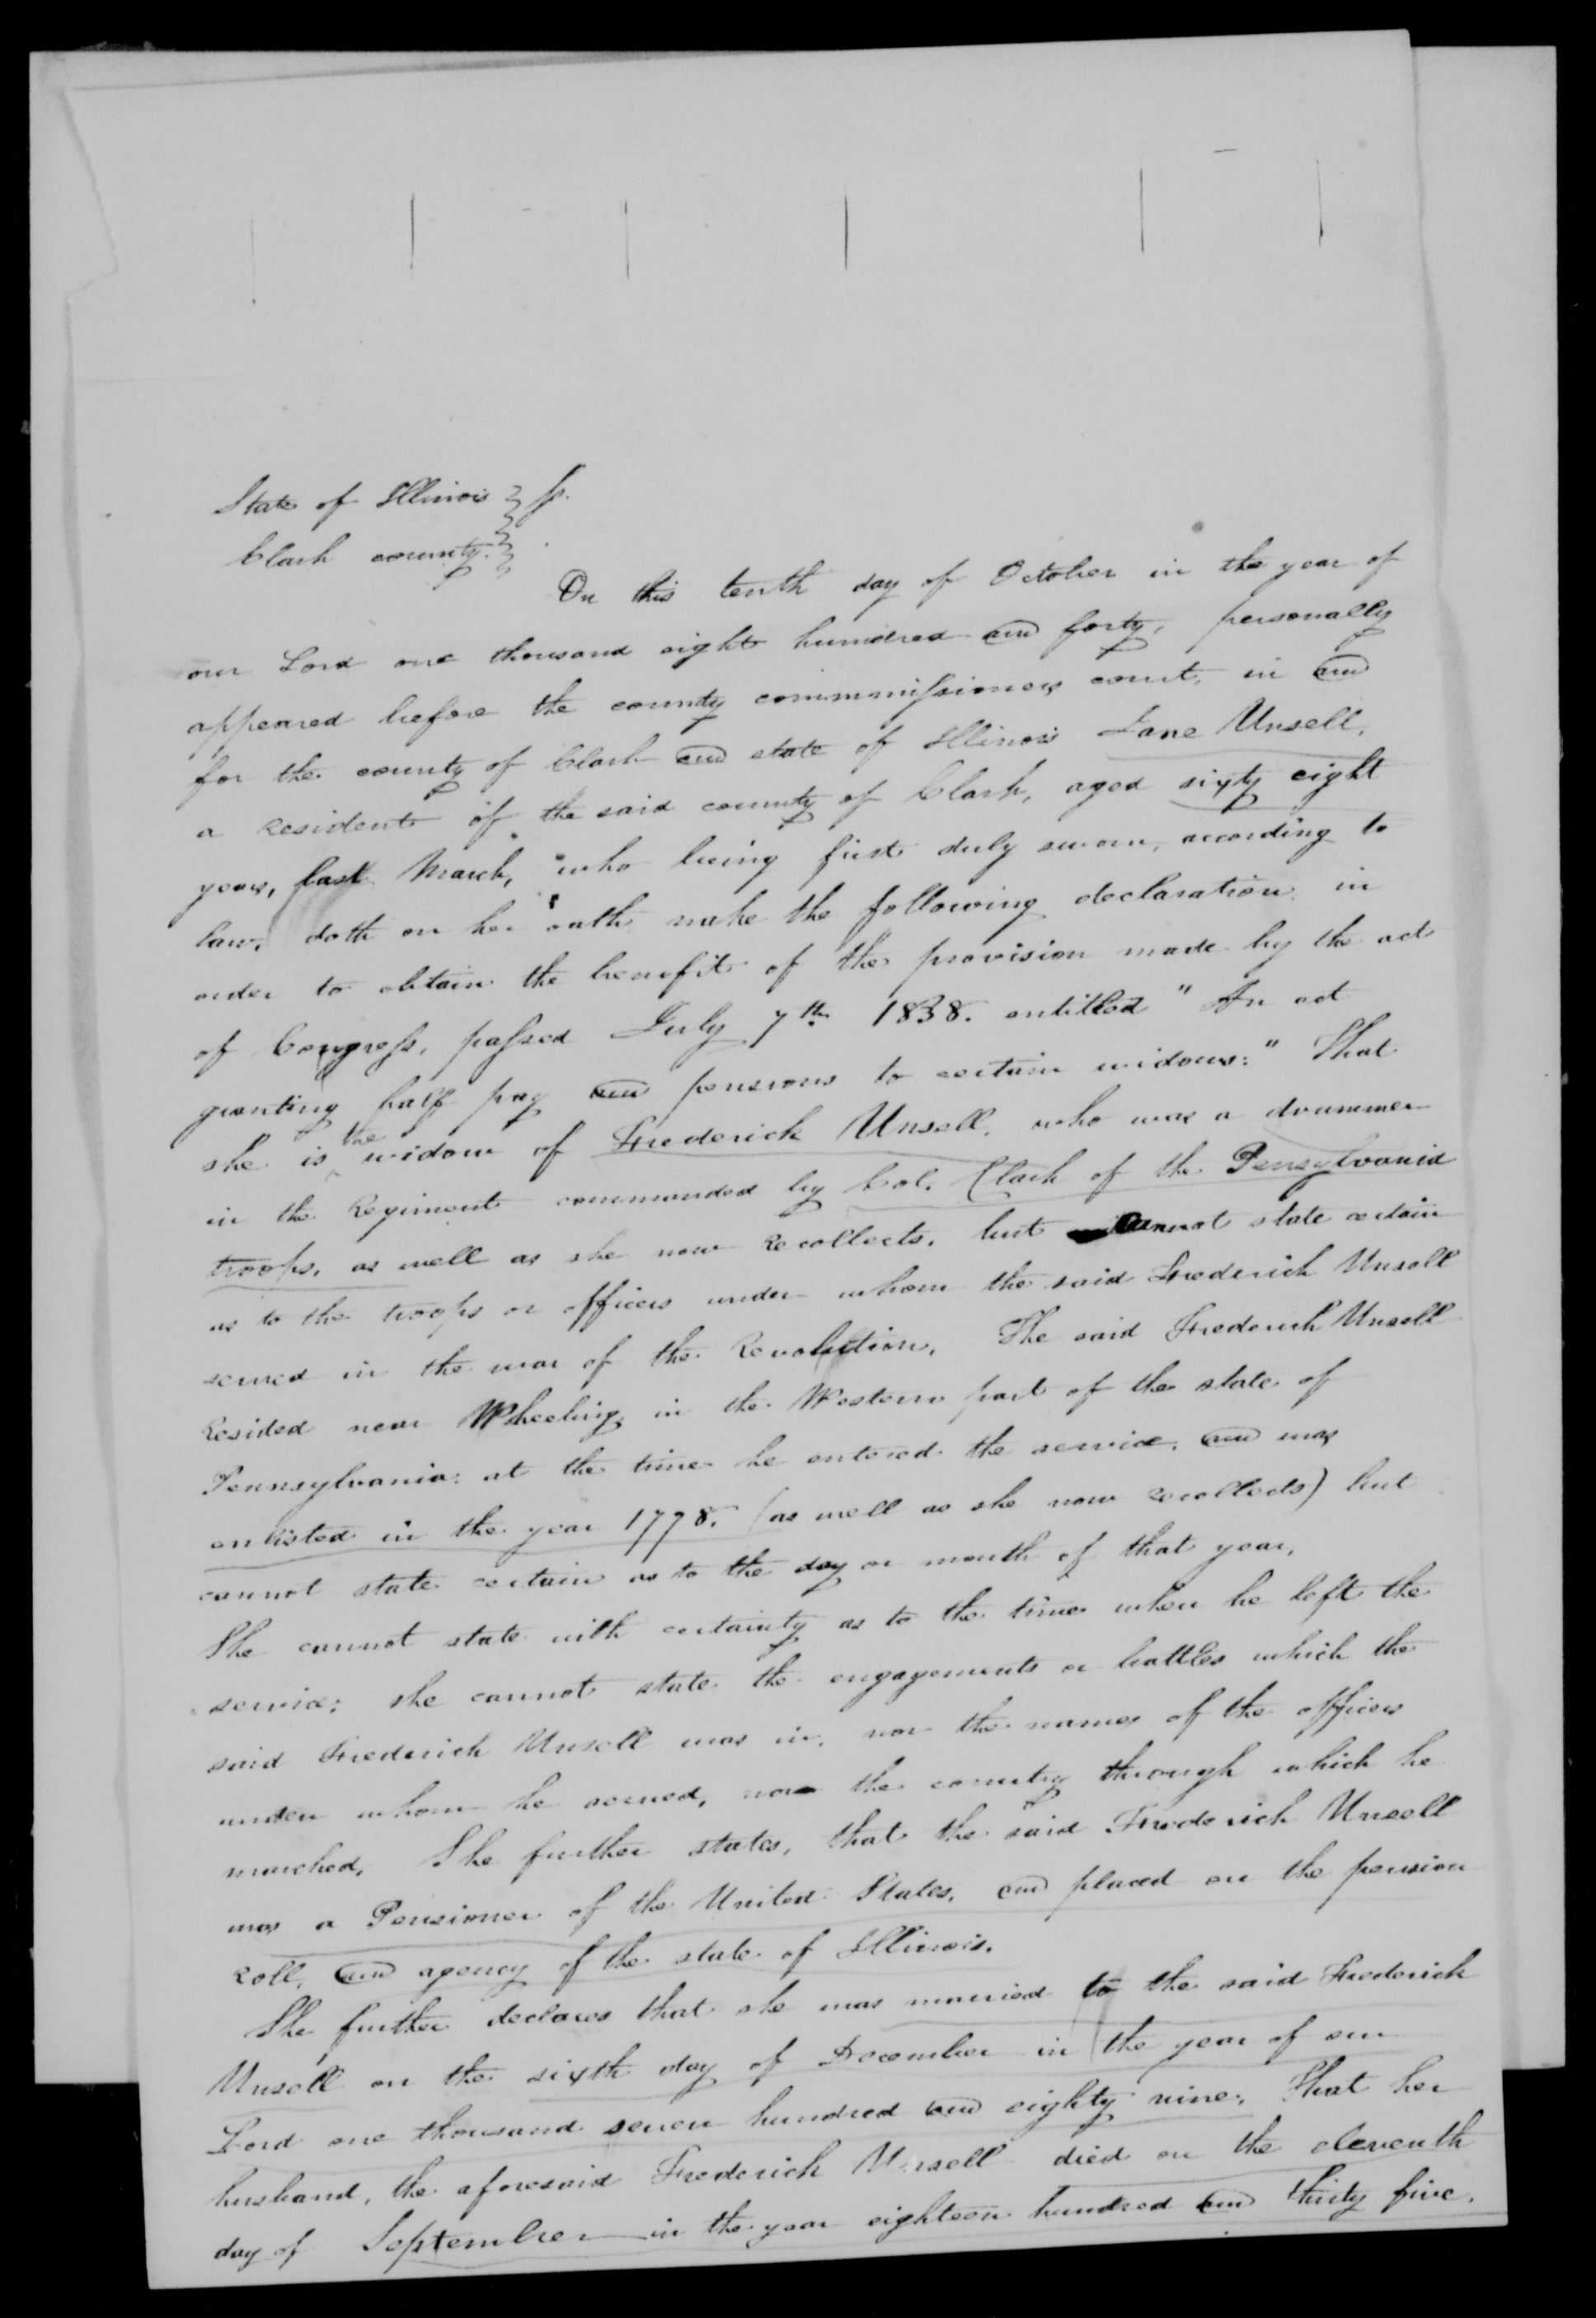 State of Illinois } ss.
Clark county. }
On this tenth day of October in the year of
our Lord one thousand eight hundred and forty, personally
appeared before the county commmissioners court, in and
for the county of Clark and state of Illinois Jane Unsell,
a Resident of the said county of Clark, aged sixty eight
years, last March, who being first duly sworn, according to
law, doth on her oath make the following declaration in
order to obtain the benefit of the provision made by the act
of Congress, passed July 7th 1838. entitled "An act
granting half pay and pensions to certain widows:" That
she is the widow of Frederick Unsell, who was a drummer
in the Regiment commanded by Col. Clark of the Pensylvania
troops, as well as she now Recollects, but cannot state certain
as to the troops or officers under whom the said Frederick Unsell
served in the war of the Revolution, The said Frederick Unsell
Resided near Wheeling in the Western part of the state of
Pennsylvania: at the time he entered the service, and was
enlisted in the year 1778. (as well as she now recollects) but
cannot state certain as to the day or month of that year,
She cannot state with certainty as to the time when he left the
service; she cannot state the engagements or battles which the
said Frederick Unsell was in, nor the names of the officers
under whom he served, nor the country through which he
marched, She further states, that the said Frederick Unsell
was a Pensioner of the United States, and placed on the pension
Roll, and agency of the state of Illinois.
She further declares that she was married to the said Frederick
Unsell on the sixth day of December in the year of our
Lord one thousand seven hundred and eighty nine; That her
husband, the aforesaid Frederick Unsell died on the eleventh
day of September in the year eighteen hundred and thirty five.